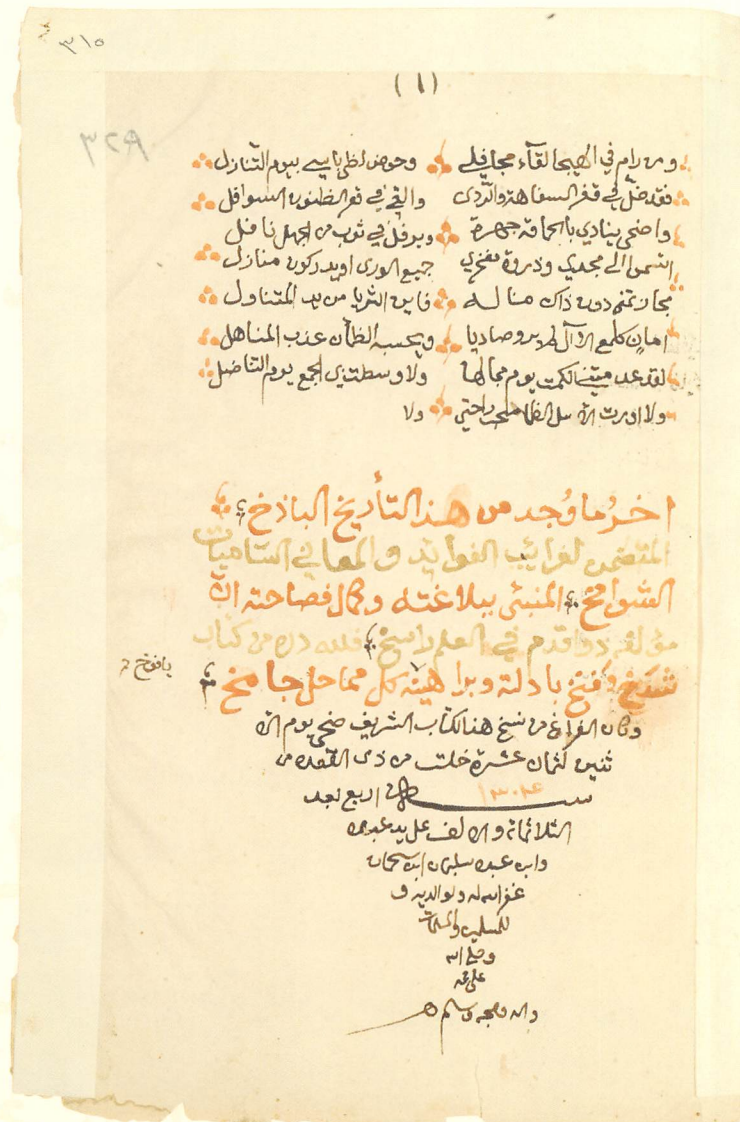 ٣١٥
(١)
٣٢٩
ومن رام في الهيجا لقآء مجافلي وحوض لظى باسي بيوم التنازل
فقد ضل في قفر السفاهة والردى والقي في قعر الظنون السوافل
واضحى ينادي بالحماقة جهرة ويرفل في ثوب من الجهل نافل
الشمس الى مجدي وذروة مفخري جميع الورى او يدركون منازل
مجاز تمنى دون ذاك مناله فاين الثريا من يد المتناول
امانٍ كلمع الال صاديا ويحسبه الظمأن عذب المناهل
لقد يوم مجالها ولا وسطت الجمع يوم التناضل
ولا ادرت راحتي ولا
اخر ما وُجد من هذا التأريخ الباذخ
المتضمن لغرائب الفوايد والمعاني الساميات
الشوامخ المنبئ ببلاغته وكمال فصاحته ان
مؤلفه ذو قدم في العلم راسخ فلله دره من كتاب
شدخ وفنخ بادلته وبراهينه كل مماحل جامخ
يافوخ
وكان الفراغ من نسخ هذا الكتاب الشريف ضحى يوم الا
ثنين لثمان عشرة خلت من ذي القعده من
سنــــة ١٣٠٤ اربع بعد
الثلاثمائة والالف على يد عبده
وابن عبده سليمان ابن سحمان
غفر الله له ولوالديه و
للمسلمين والمسلمات
وصلى الله
على محمد
واله وصحبه وسلم